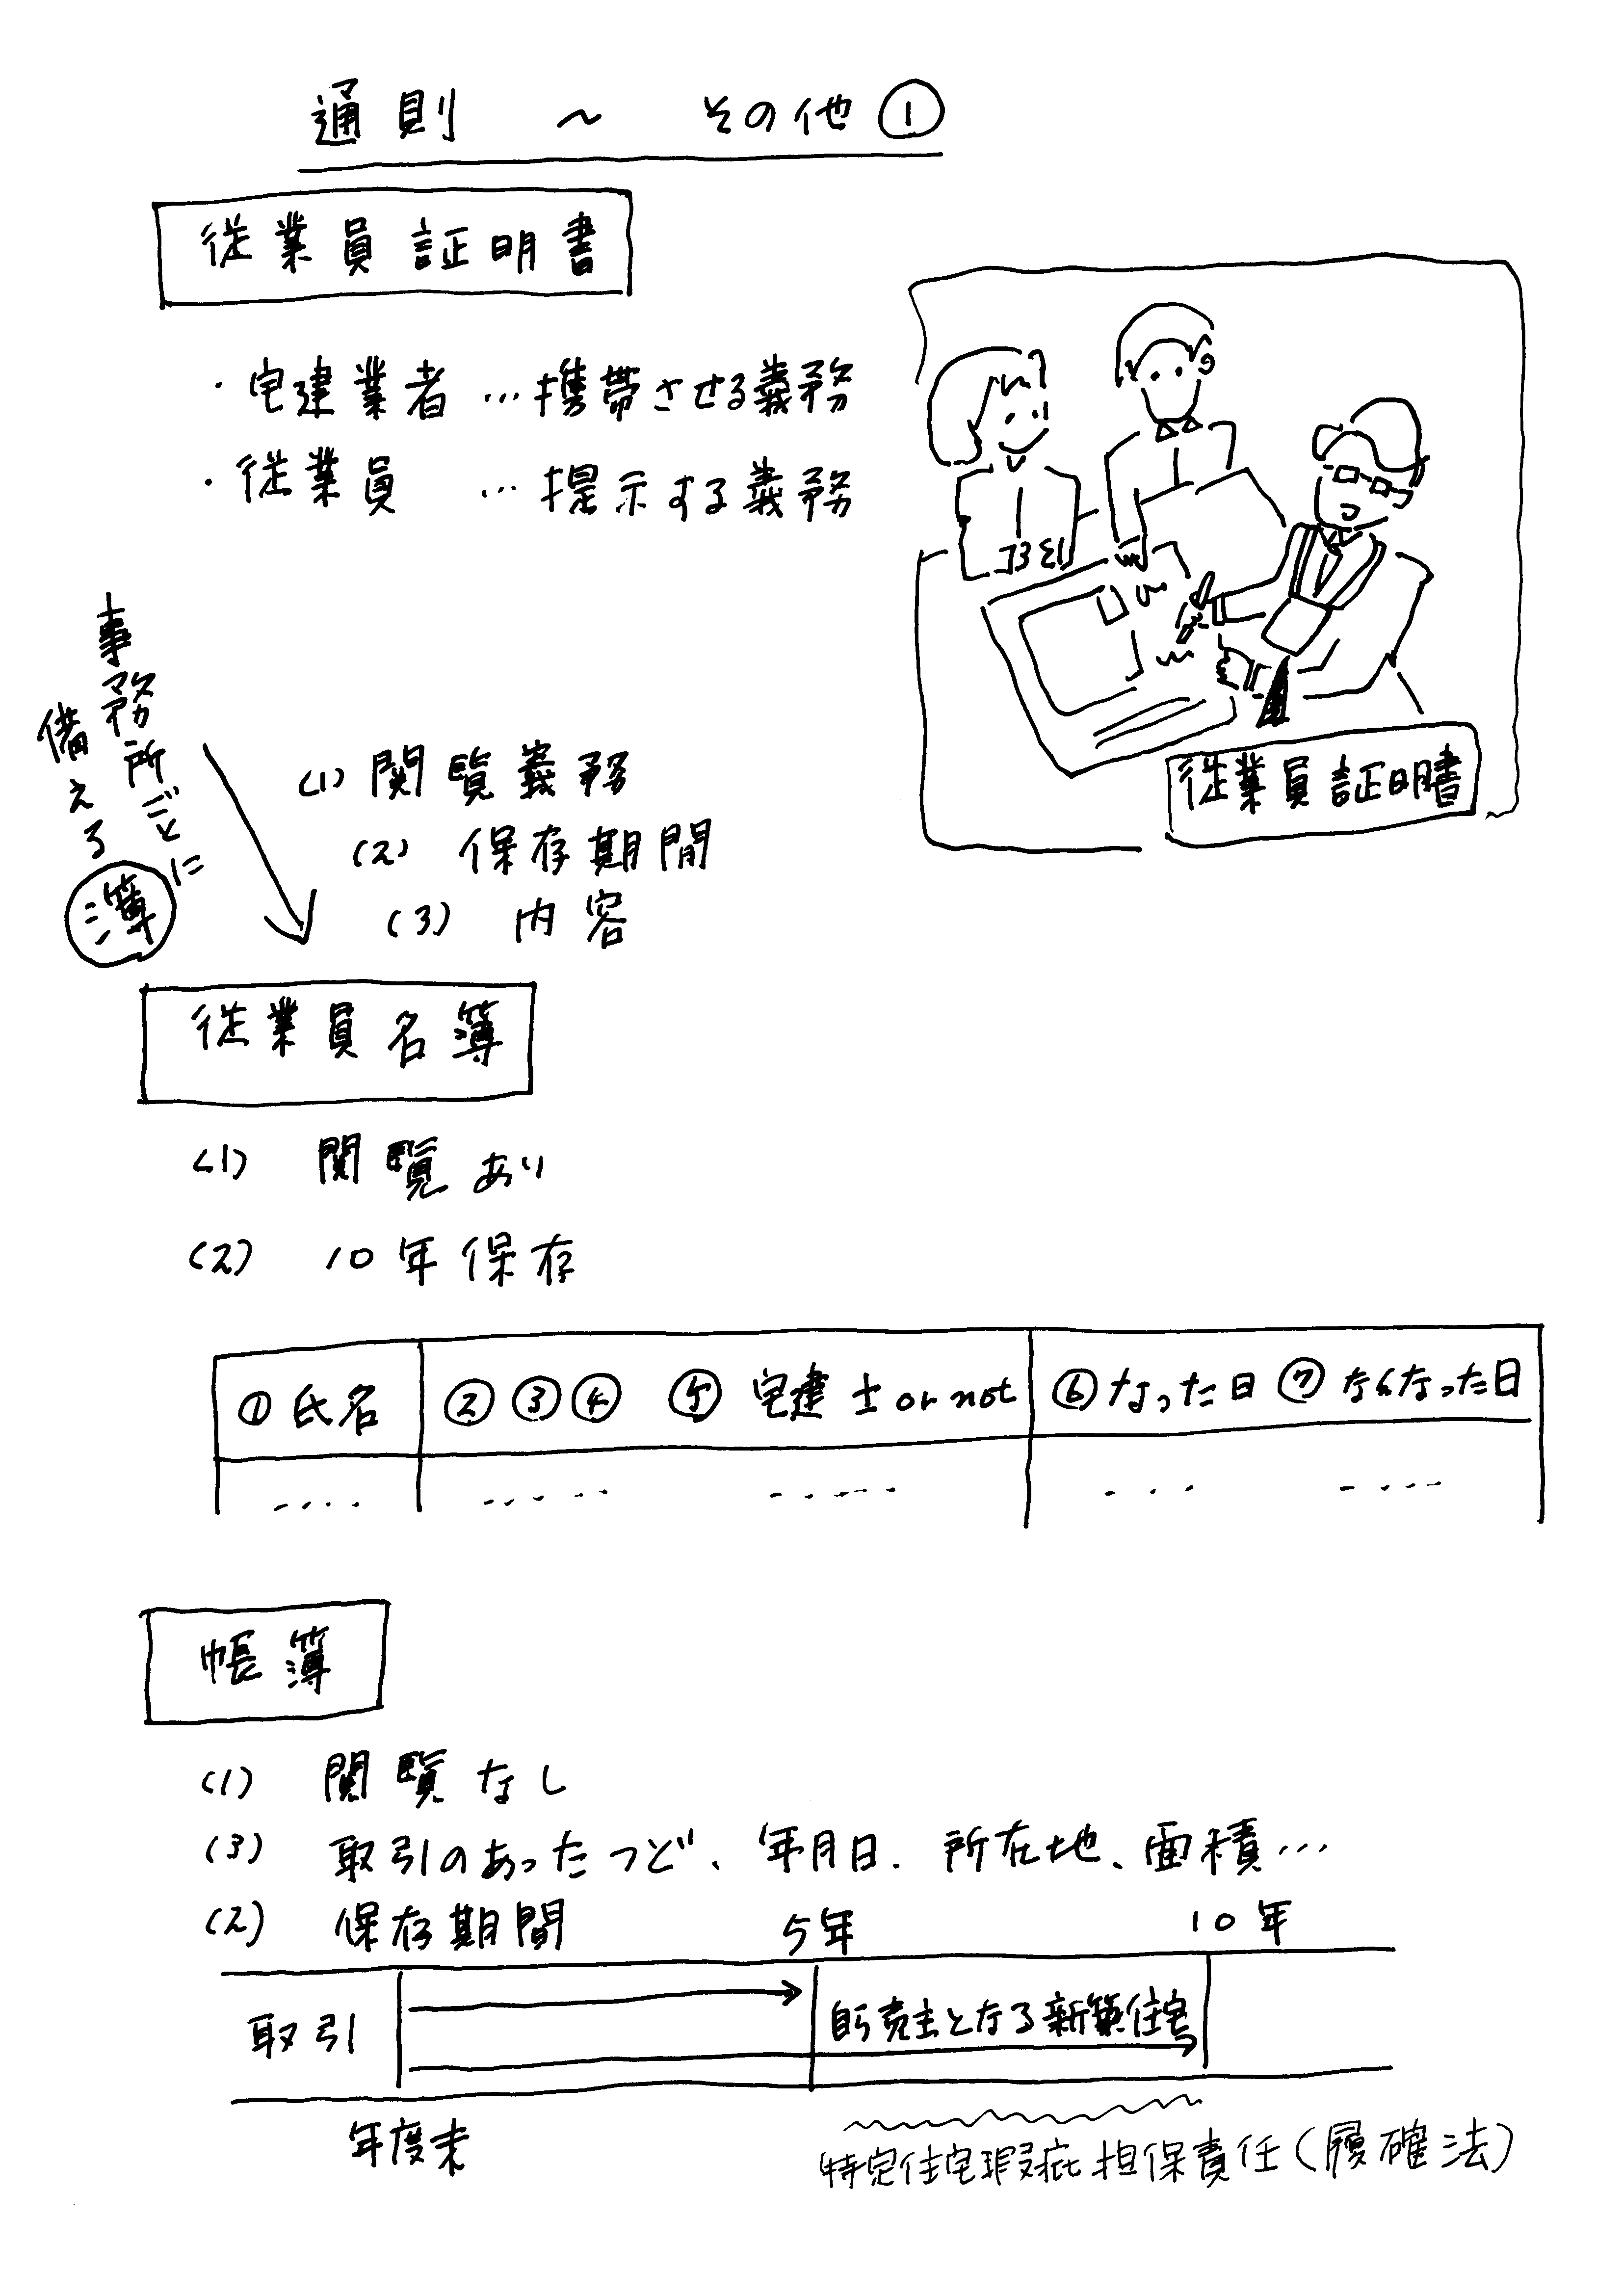 通則 〜 その他①
従業員証明書
・宅建業者 …携帯させる義務
・従業員 …提示する義務
従業員証明書
事務所ごとに
備える
簿
(1) 閲覧義務
(2) 保存期間
(3) 内容
従業員名簿
(1) 閲覧あり
(2) 10年保存
①氏名 ②③④ ⑤ 宅建士 or not ⑥なった日 ⑦なくなった日
帳簿
(1) 閲覧なし
(3) 取引のあったつど、年月日、所在地、面積…
(2) 保存期間 5年 10年
取引 自ら売主となる新築住宅
年度末
特定住宅瑕疵担保責任(履確法)